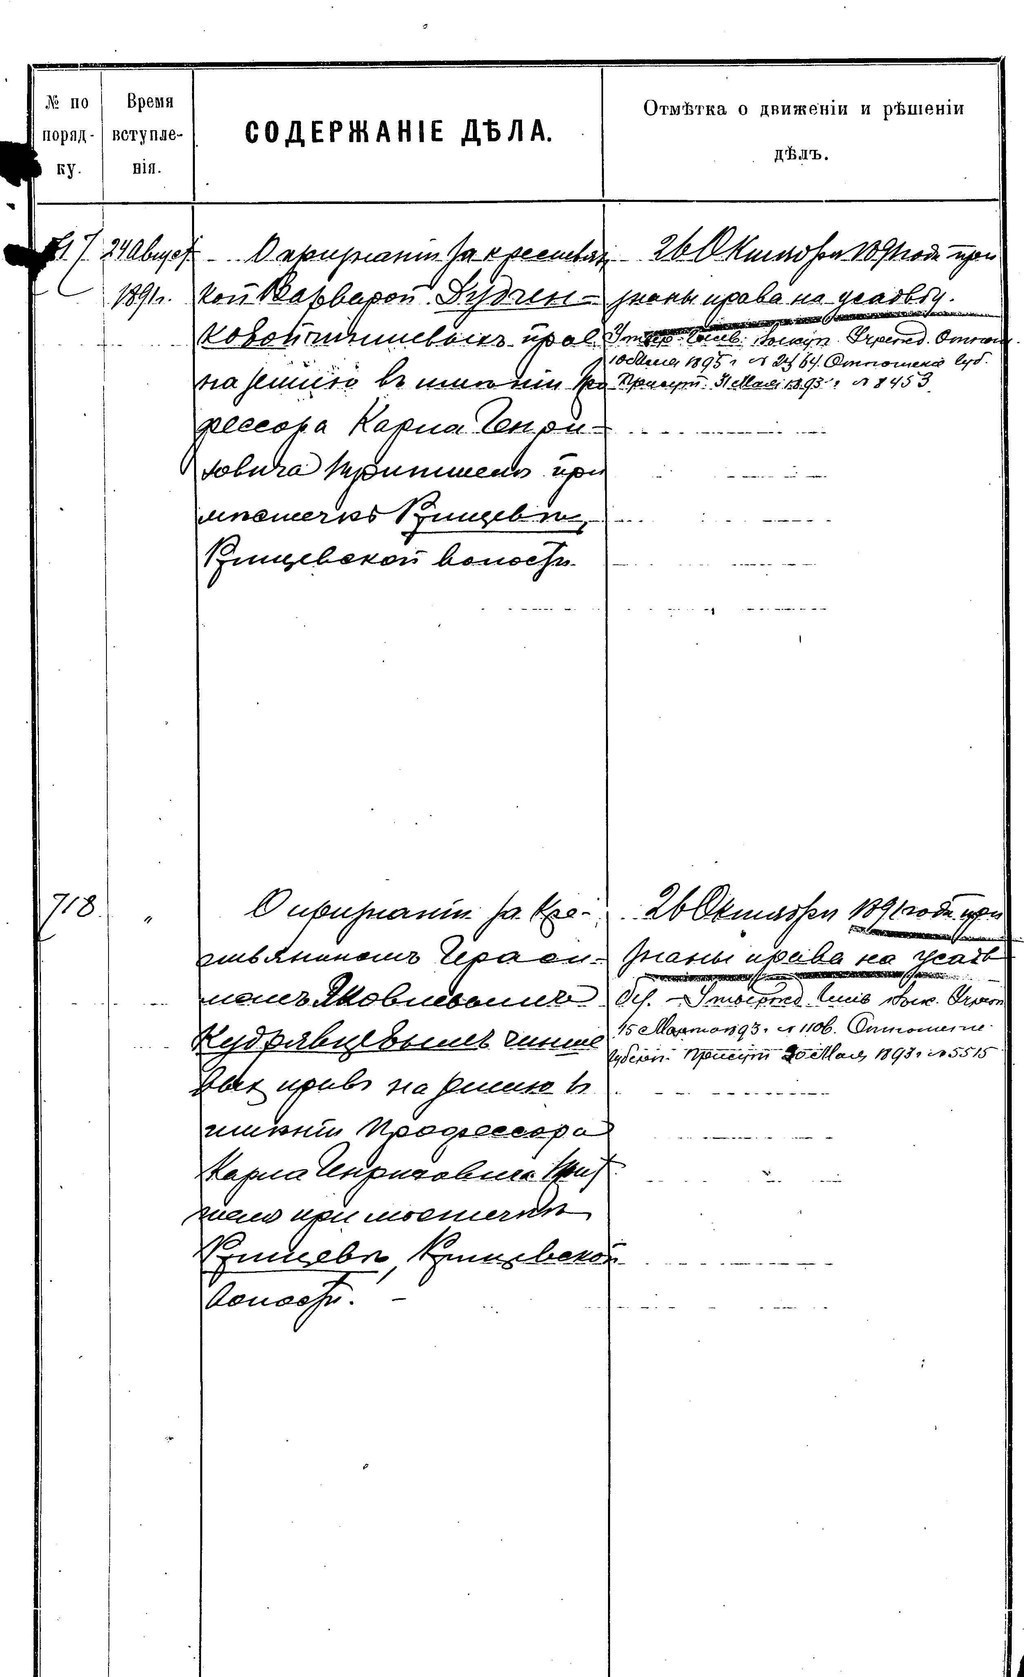 № по поряд-ку.
Время вступле-нія.
СОДЕРЖАНІЕ ДѢЛА.
Отмѣтка о движеніи и рѣшеніи
дѣлъ.
717
24 Август
1891 г.
О признаніи за крестьян
кой Варварой Дудчен-
ковой чиншевыхъ прав
на землю въ имѣніи Про
фессора Карла Генри-
ховича при
мѣстечкѣ Рящевѣ,
Рящевской волости.
26 Октября 1891 года при
знаны права на усадьбу.
Утвер. Чинш. выкуп. Учрежд. Отнош
10 Мая 1895 г. № 2364. Отношеніе Губ.
Присут. 31 Мая 1893 г. № 8453
718
"
О признаніи за кре-
стьяниномъ Гераси-
момъ Яковлевымъ
Кудрявцевымъ чинше
выхъ правъ на землю въ
имѣніи Профессора
Карла Генриховича
при мѣстечкѣ
Рящевѣ, Рящевской
волости. -
26 Октября 1891 года при
знаны права на усадь
бу. - Утвержд. Чинш. вык. Учреж
15 Марта 1893 г. № 1106. Отношеніе
Губерн. Присут. 20 Мая 1893 г. № 5515